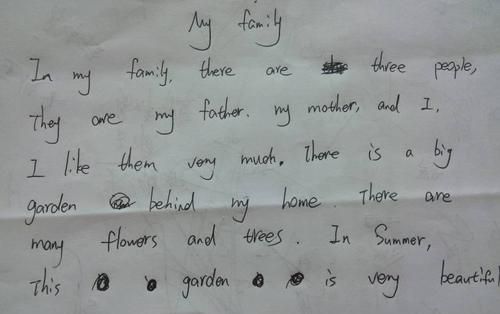 My family
In my family, there are three people,
They are my father. my mother, and I,
I like them very much. There is a big
garden behind my home. There are
many flowers and trees. In Summer,
This garden is very beautiful